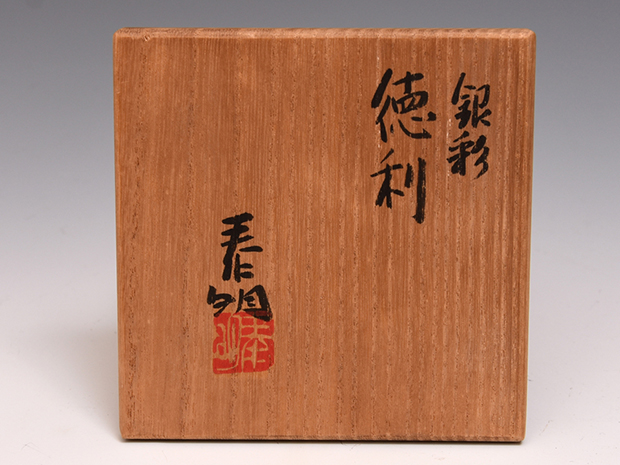 銀彩
徳利
泰明